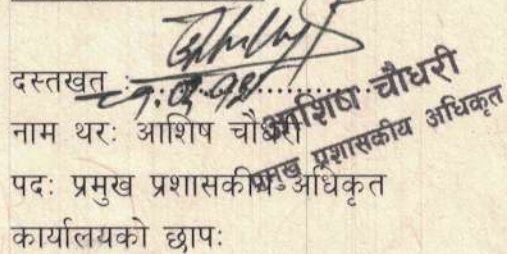 दस्तखत :..................
नाम थर: आशिष चौधरी
पद: प्रमुख प्रशासकीय अधिकृत
कार्यालयको छाप:
आशिष चौधरी
प्रमुख प्रशासकीय अधिकृत